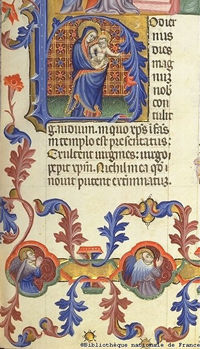 Odier
nus
dies
mag
nuz
nob
con
tulit
gaudium. in quo xps ihs
in templo est presentatus:
Exultent uirgines: uirgo
pepit xpm. Nichil in ea qd
nouit putent
©Bibliothèque nationale de France